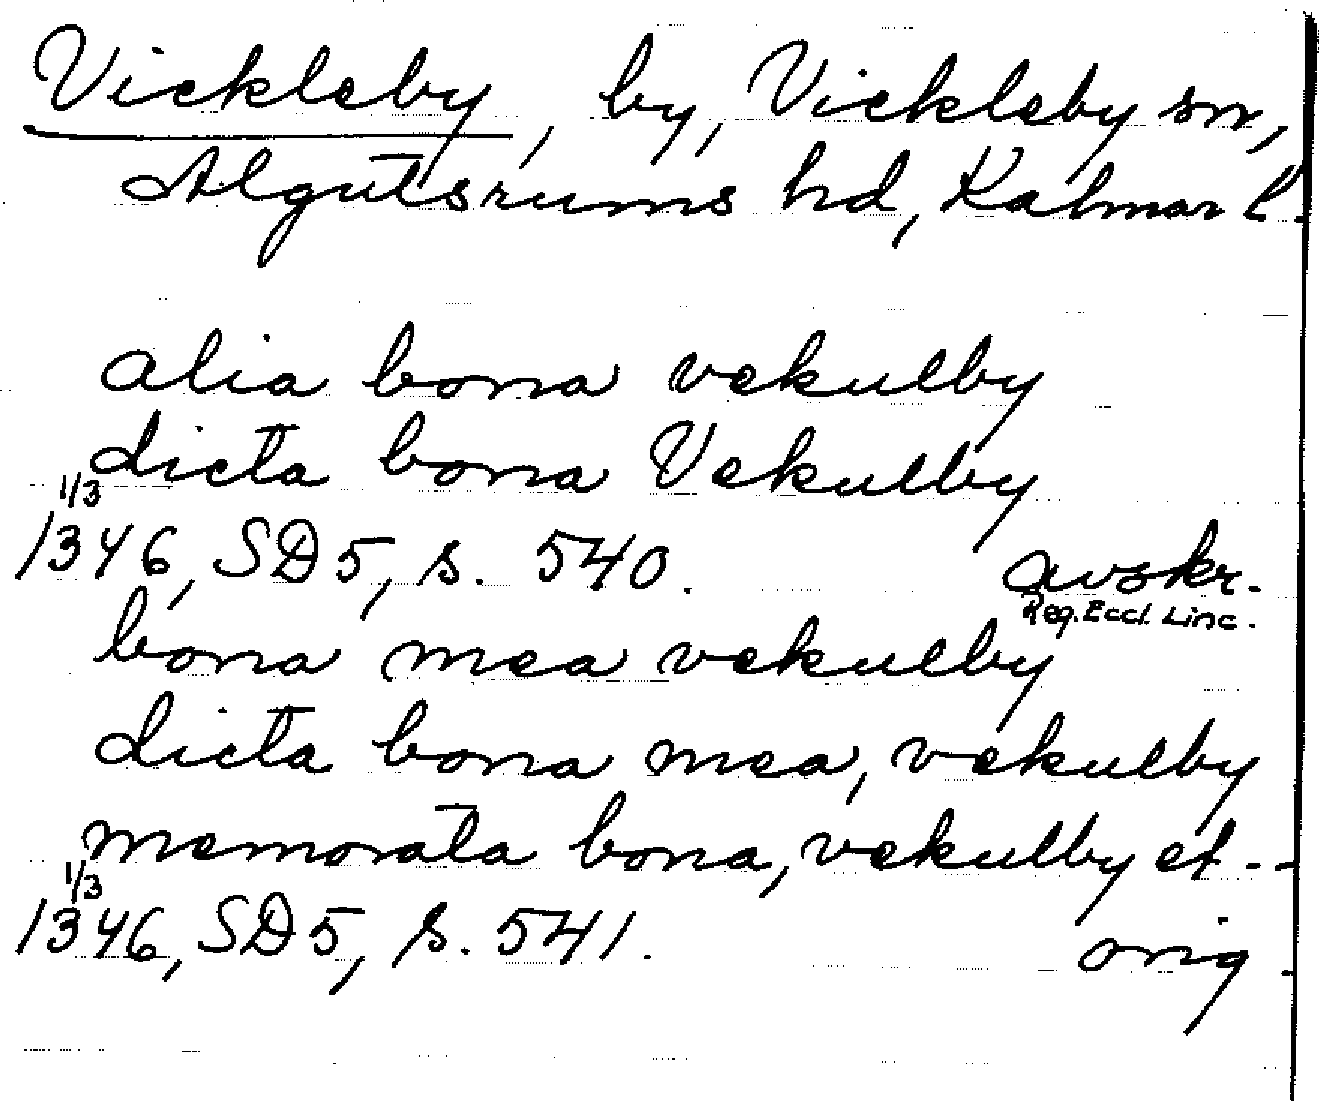 Vickleby, by, Vickleby sn,
Algutsrums hd, Kalmar l.
alia bona vekulby
dicta bona Vekulby
1/3
1346, SD5, s. 540. avskr.
Reg. Eccl. Linc.
bona mea vekulby
dicta bona mea, vekulby
memorata bona, vekulby et - -
1/3
1346, SD5, s. 541. orig.